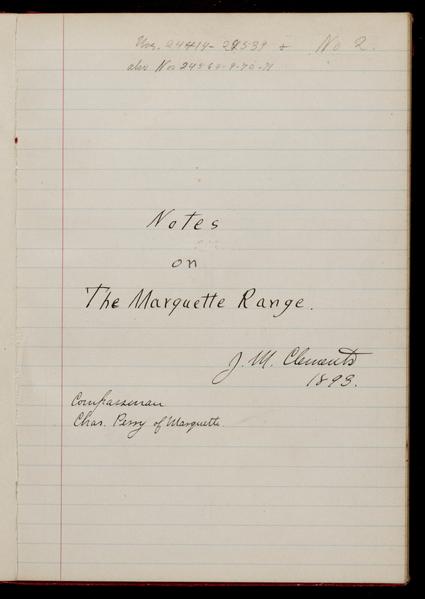 Nos. 24414 - 24539 + No 2.
also Nos 24569-9-70-71
Notes
on
The Marquette Range.
J. M. Clements
1893.
Compassman
Chas. Perry of Marquette.